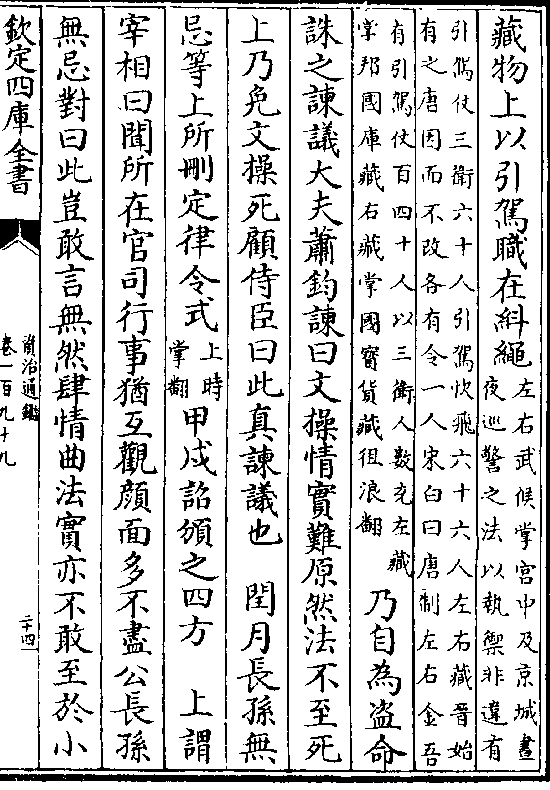 藏物上以引駕職在糾繩左右武候掌宫中及京城晝夜巡警之法以執禦非違有
引駕仗三衛六十人引駕佽飛六十六人左右藏晉始有之唐因而不改各有令一人宋白曰唐制左右金吾
有引駕仗百四十人以三衛人數充左藏掌邦國庫藏右藏掌國寳貨藏徂浪翻乃自為盗命
誅之諫議大夫蕭鈞諫曰文操情實難原然法不至死
上乃免文操死顧侍臣曰此真諫議也 閏月長孫無
忌等上所刪定律令式上時掌翻甲戌詔頒之四方 上謂
宰相曰聞所在官司行事猶互觀顔面多不盡公長孫
無忌對曰此豈敢言無然肆情曲法實亦不敢至於小
欽定四庫全書
資治通鑑
卷一百九十九
二十四